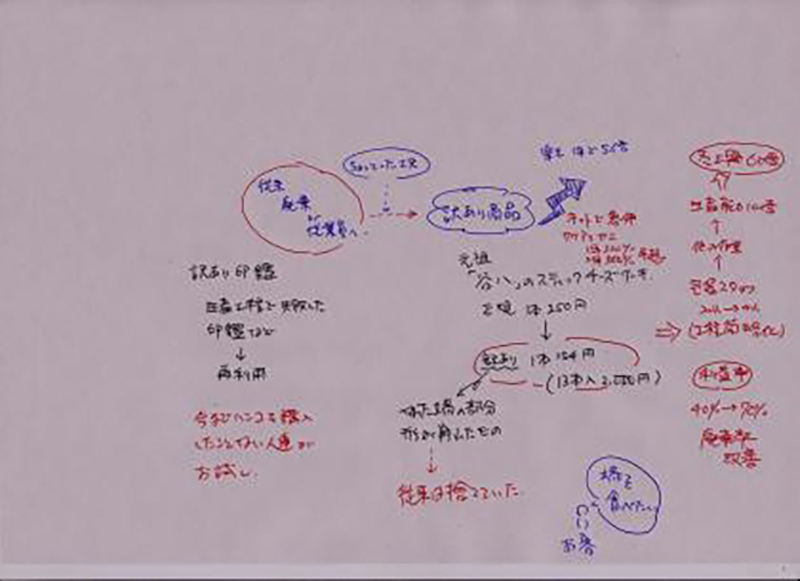 従来
廃棄
従業員へ
訳あり商品
楽天
売上高60倍
生産能力10倍
他の作業
包装スタッフ
(工程簡略化)
利益率
40%→70%
廃棄率
改善
ネットで
元祖
「谷八」のスティックチーズケーキ
正規 1本250円
↓
訳あり 1本154円
(13本入
端の部分
形が崩れたもの
↓
従来は捨てていた
訳あり印鑑
生産工程で失敗した
印鑑など
↓
再利用
今までハンコを購入
したことない人達が
お試し
端を
食べたい
お客